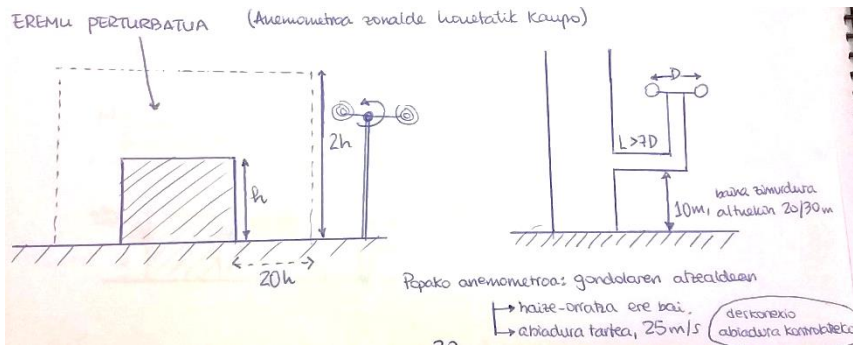 EREMU PERTURBATUA (Anemometroa zonalde honetatik kanpo)
2h
h
20h
D
L>7D
10m, baina zimurdura
altuekin 20/30m
Popako anemometroa: gondolaren atzealdean
haize-orratza ere bai.
abiadura tartea, 25m/s
deskonexio
abiadura kontrolatzeko